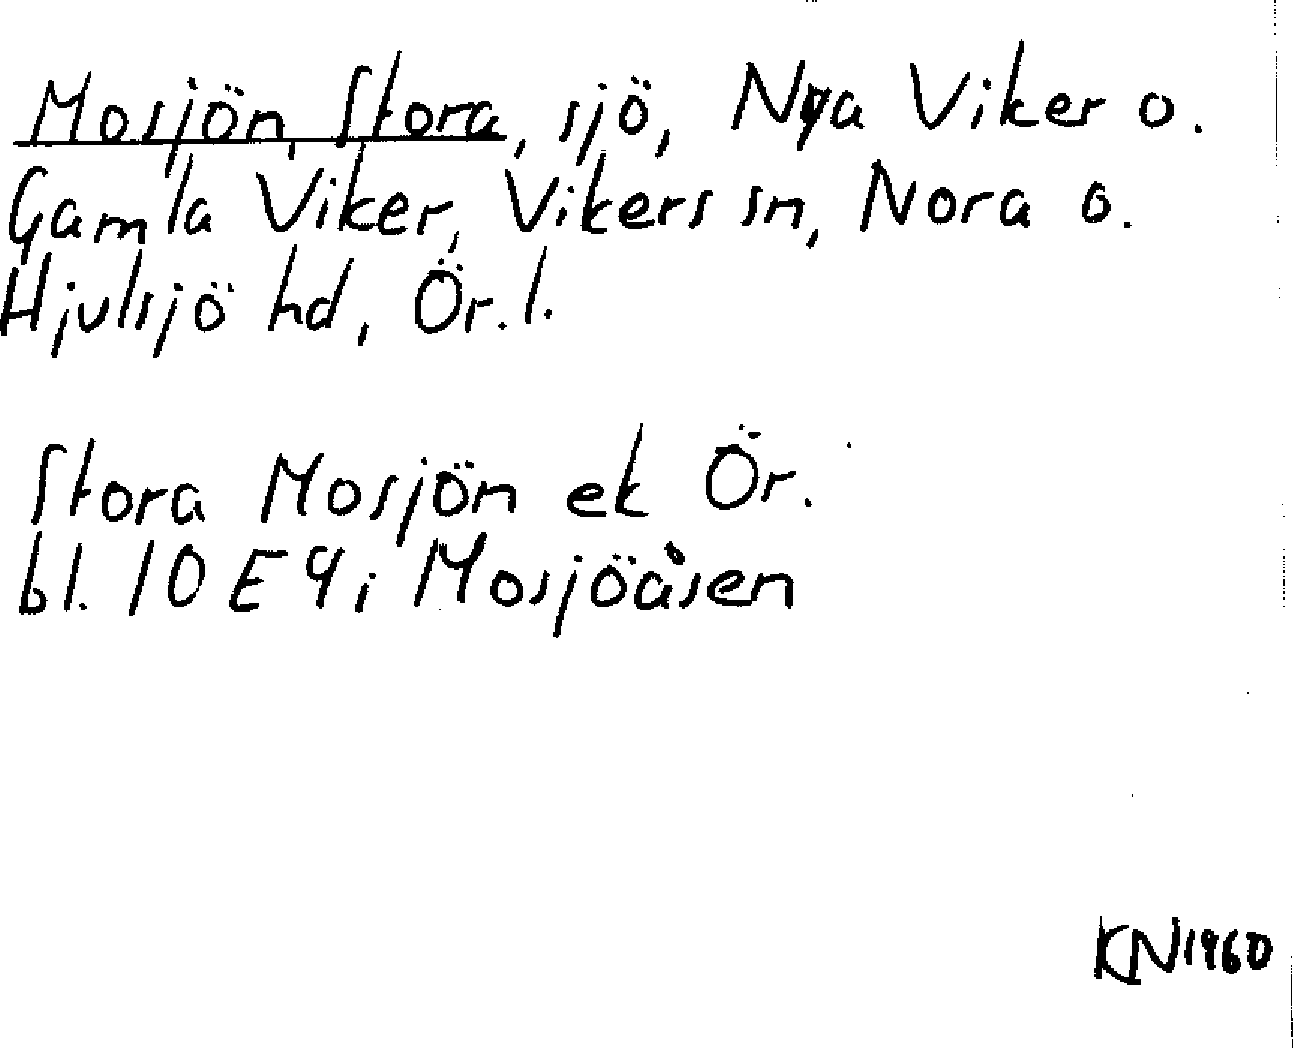 Mosjön, Stora, sjö, Nya Viker o.
Gamla Viker, Vikers sn, Nora o.
Hjulsjö hd, Ör. l.
Stora Mosjön ek Ör.
bl. 10 E 9 i Mosjöåsen
KN 1960